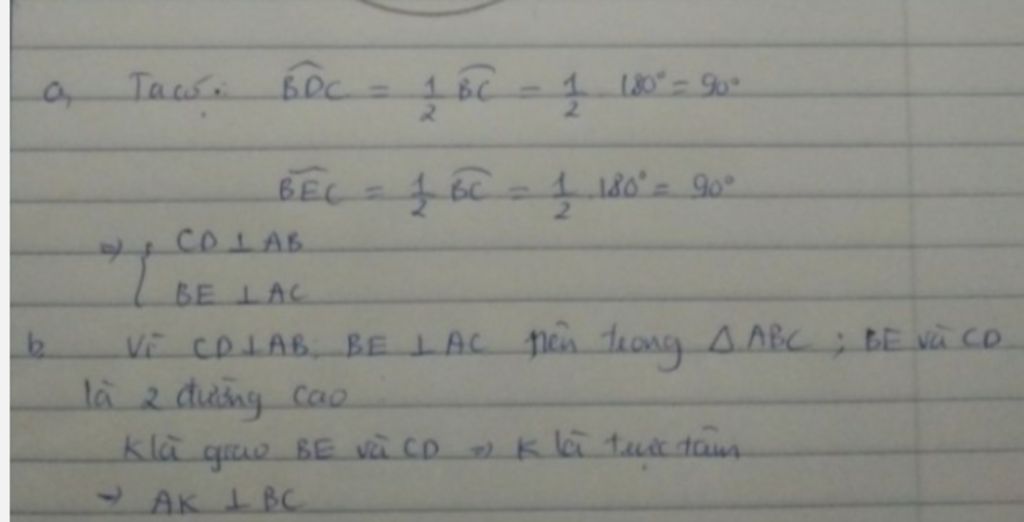 a, Ta có: \widehat{BDC} = \frac{1}{2} \widehat{BC} = \frac{1}{2} 180° = 90°
\widehat{BEC} = \frac{1}{2} \widehat{BC} = \frac{1}{2} .180° = 90°
=> { CD ⊥ AB
BE ⊥ AC
b, Vì CD ⊥ AB, BE ⊥ AC nên trong Δ ABC ; BE và CD
là 2 đường cao
K là giao BE và CD => K là trực tâm
→ AK ⊥ BC